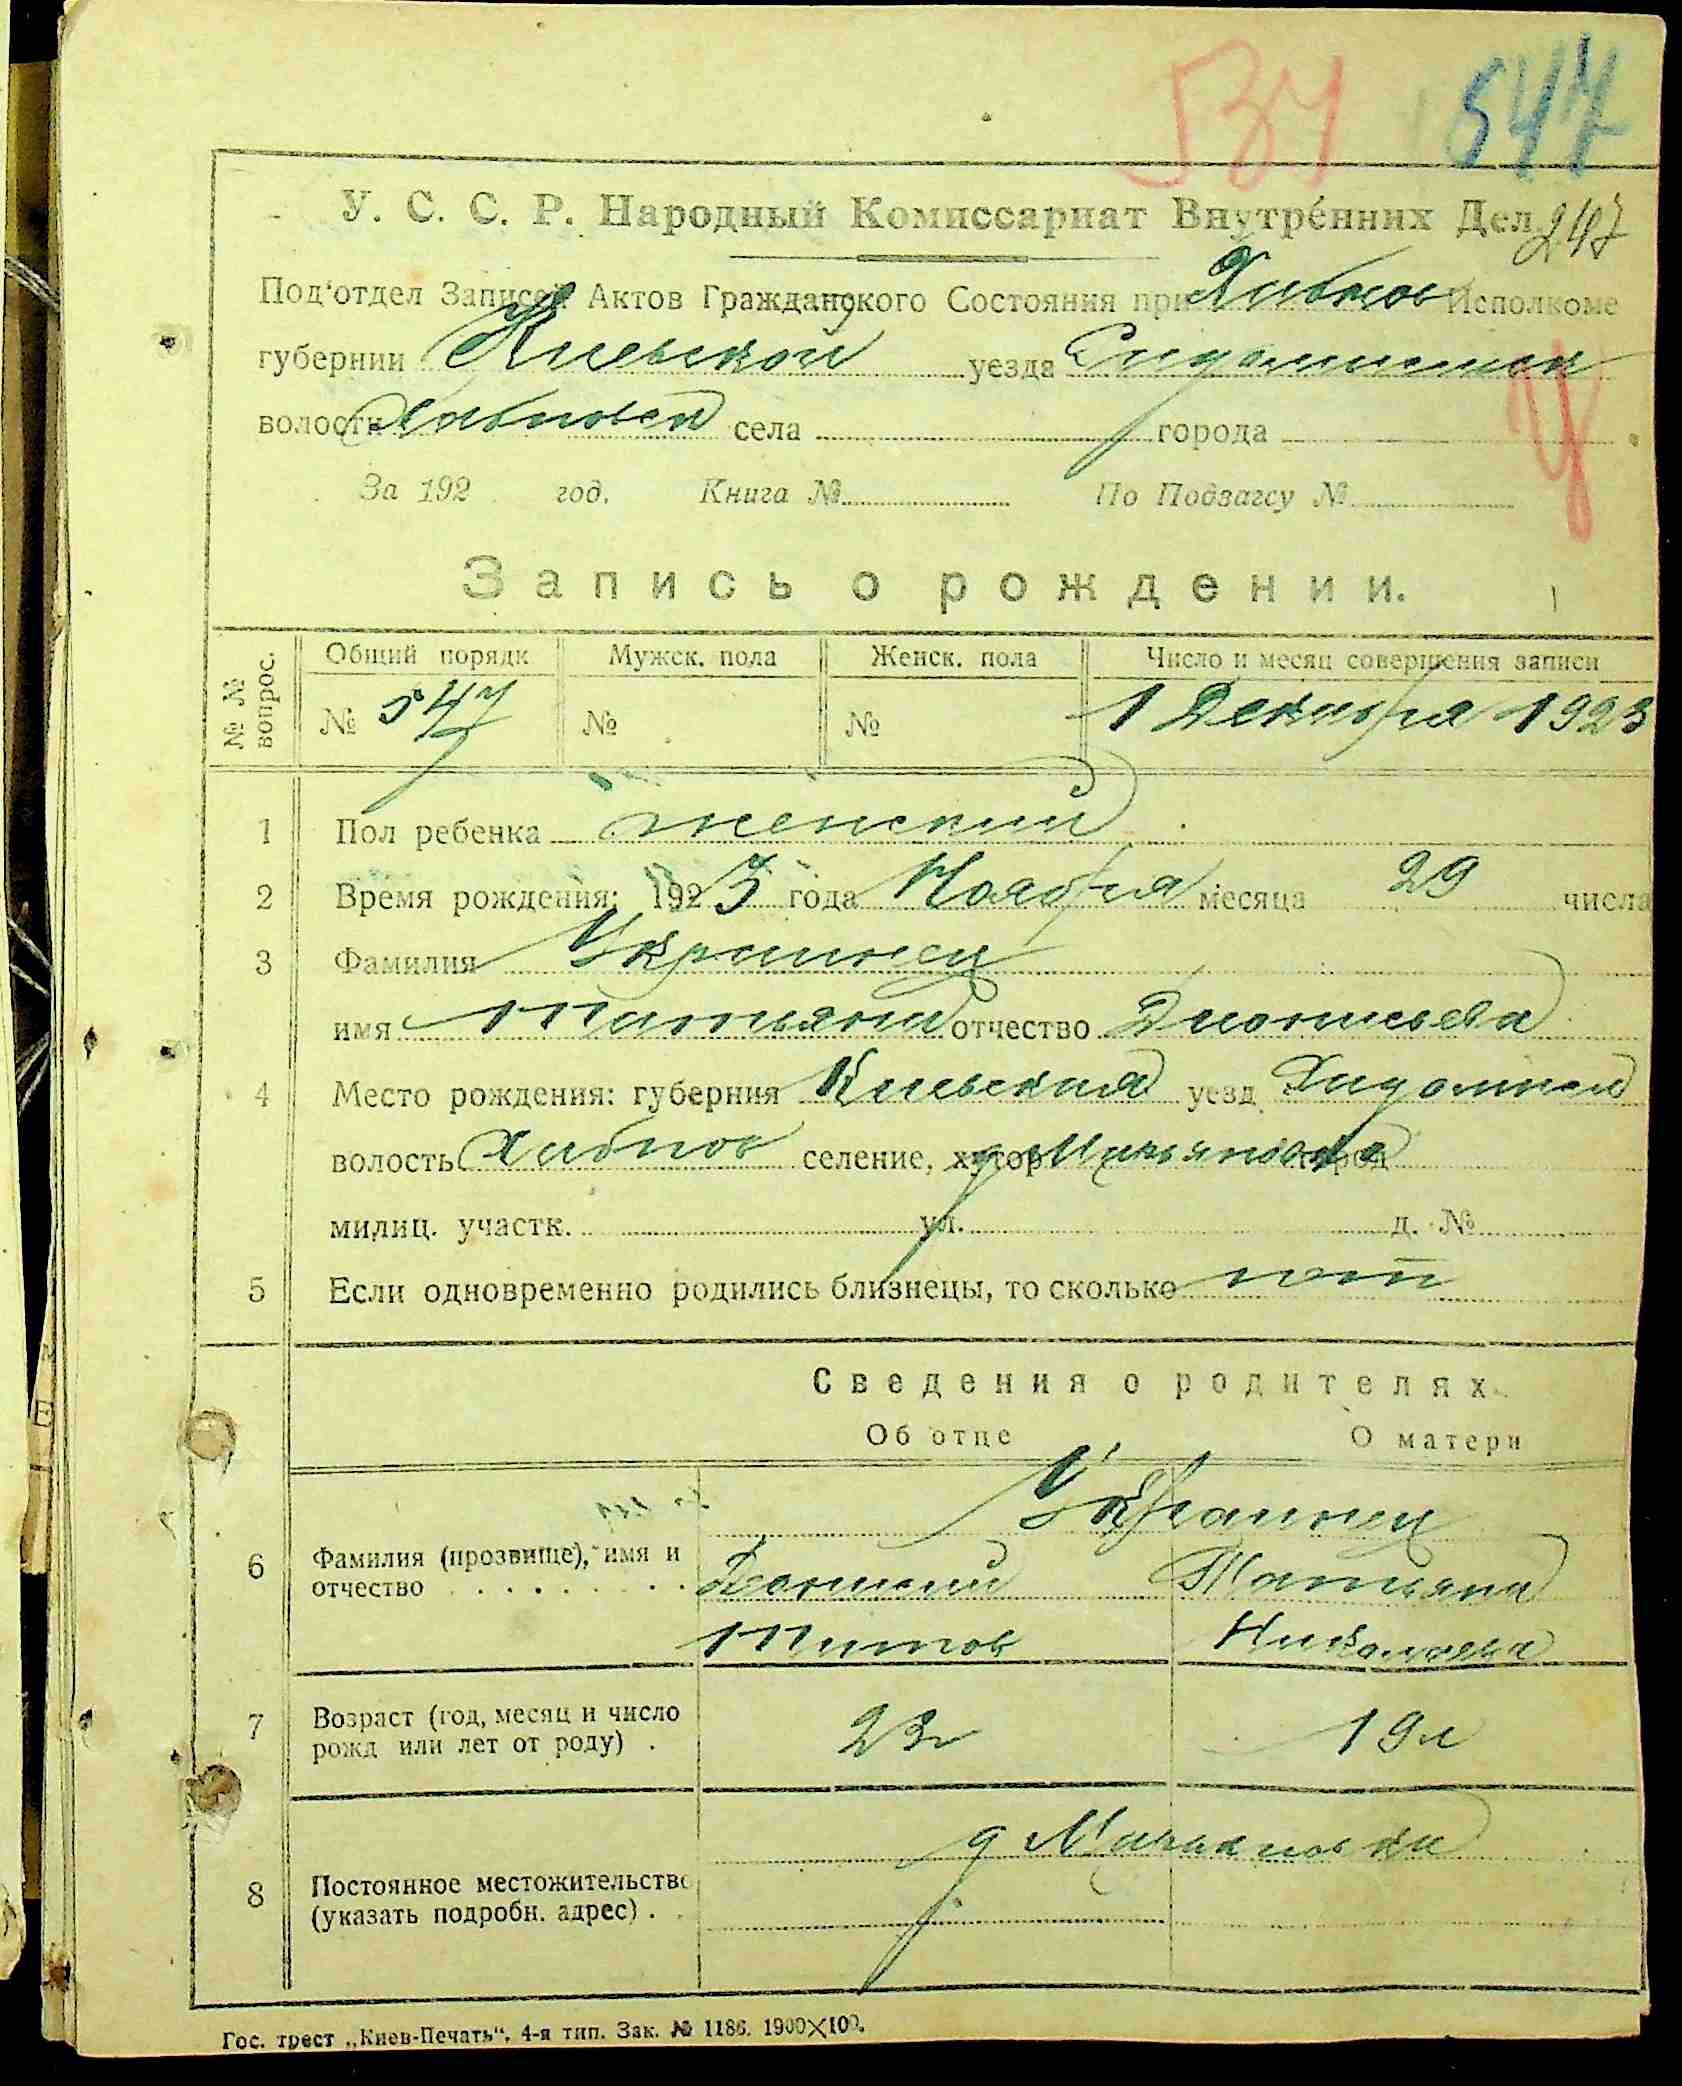 547
247
У. С. С. Р. Народный Комиссариат Внутренних Дел
Под'отдел Записей Актов Гражданского Состояния при Хабнов Исполкоме
губернии Киевской уезда
волости Хабновской села города
За 192 год. Книга № По Подзагсу №
Запись о рождении.
№ № вопрос. Общий порядк Мужск. пола Женск. пола Число и месяц совершения записи
№ 547 № № 1 Декабря 1923
1 Пол ребенка женский
2 Время рождения: 1923 года Ноября месяца 29 числа
3 Фамилия Украинец
имя Татьяна отчество Дионисьева
4 Место рождения: губерния Киевская уезд
волость Хабнов селение, хутор город
милиц. участк. ул. д. №
5 Если одновременно родились близнецы, то сколько нет
Сведения о родителях.
Об отце О матери
Украинец
6 Фамилия (прозвище), имя и
отчество Дионисий Татьяна
Титов Николаева
7 Возраст (год, месяц и число
рожд или лет от роду) . 23 г 19 л
8 Постоянное местожительство
(указать подробн. адрес) . д
Гос. трест „Киев-Печать“, 4-я тип. Зак. № 1186. 1900×100.